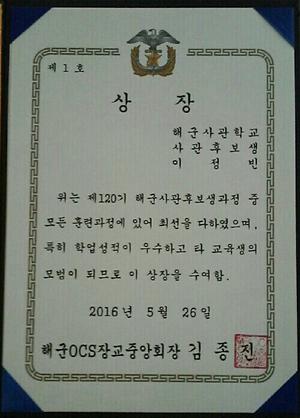 제 1 호
상 장
해군사관학교
사관후보생
이 정 빈
위는 제120기 해군사관후보생과정 중
모든 훈련과정에 있어 최선을 다하였으며,
특히 학업성적이 우수하고 타 교육생의
모범이 되므로 이 상장을 수여함.
2016년 5월 26일
해군OCS장교중앙회장 김 종 진